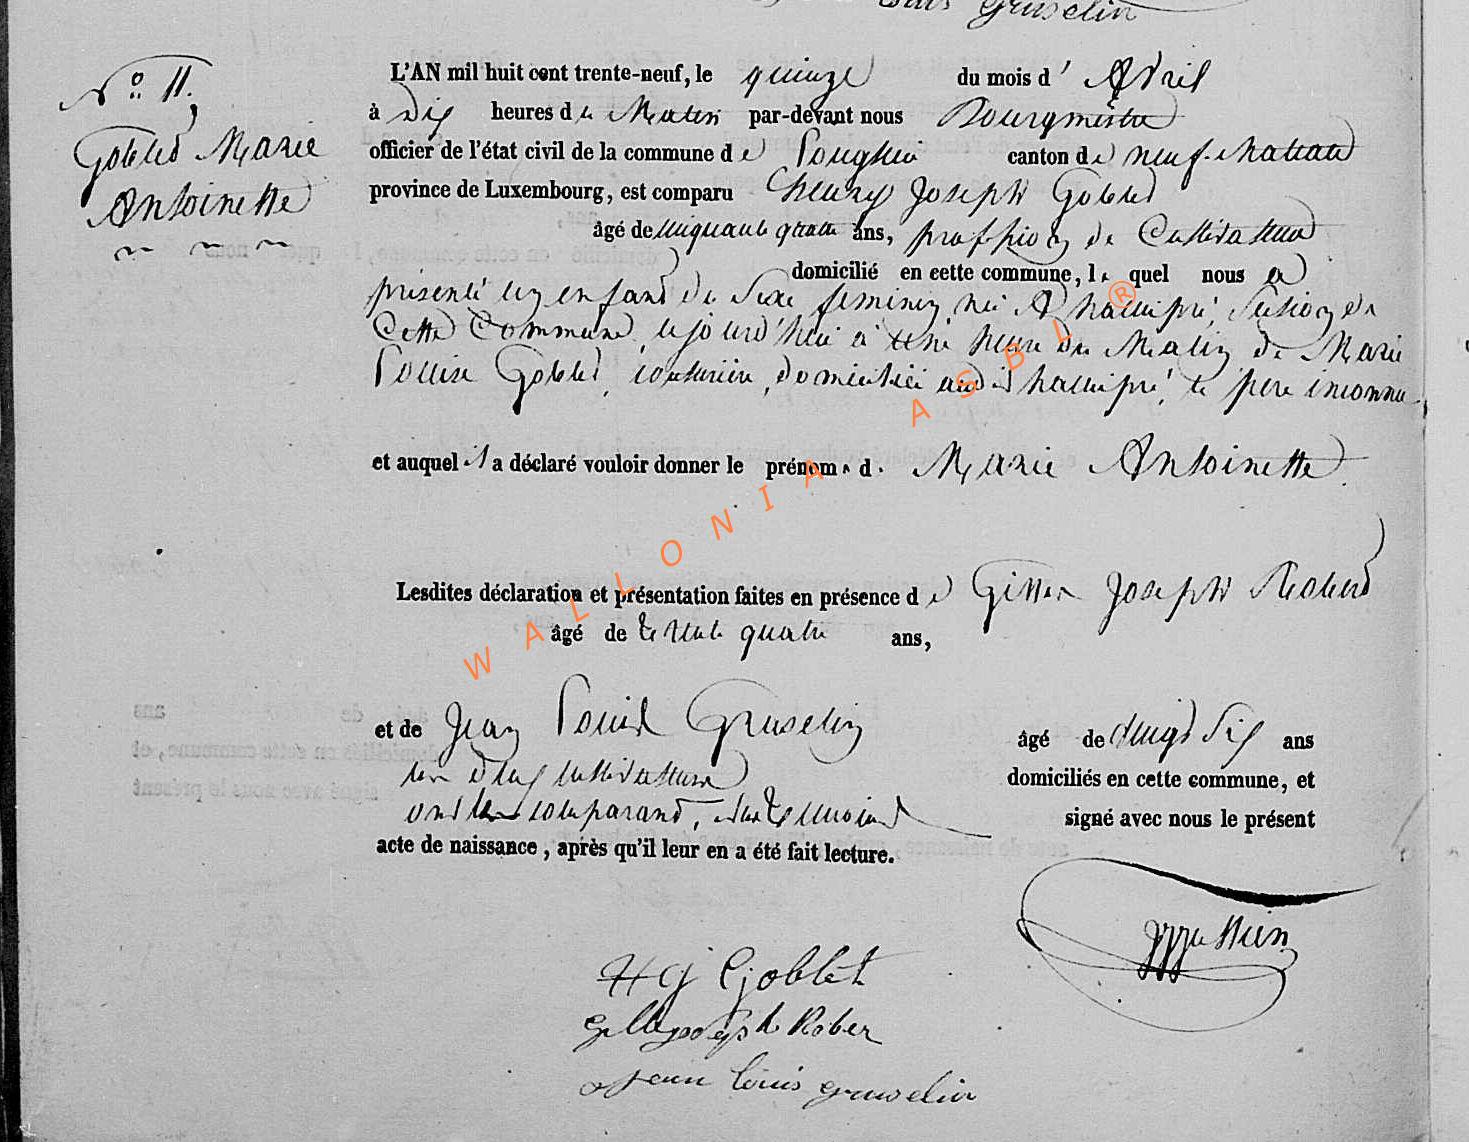 Louis Gruselin
N° 11.
Goblet Marie
Antoinette
L'AN mil huit cent trente-neuf, le quinze du mois d' Avril
à Dix heures du Matin par-devant nous Bourgmestre
officier de l'état civil de la commune de Longlier canton de neufchateau
province de Luxembourg, est comparu henry Joseph Goblet
âgé de cinquante quatre ans, profession de Cultivateur
domicilié en cette commune, le quel nous a
présenté un enfant du Sexe feminin né A hamipré, Section de
Cette Commune cejourd'hui à une heure du Matin de Marie
Louise Goblet, couturière, domiciliée audit hamipré, le père inconnu
et auquel il a déclaré vouloir donner le prénoms de Marie Antoinette.
Lesdites déclaration et présentation faites en présence de Gilles Joseph Robert
âgé de trente quatre ans,
et de Jean Louis Gruselin âgé de vingt Six ans
les deux cultivateurs domiciliés en cette commune, et
ont les comparant, et les temoins signé avec nous le présent
acte de naissance, après qu'il leur en a été fait lecture.
H J Goblet
Gille joseph Rober
jean louis gruselin
WALLONIA ASBL ®